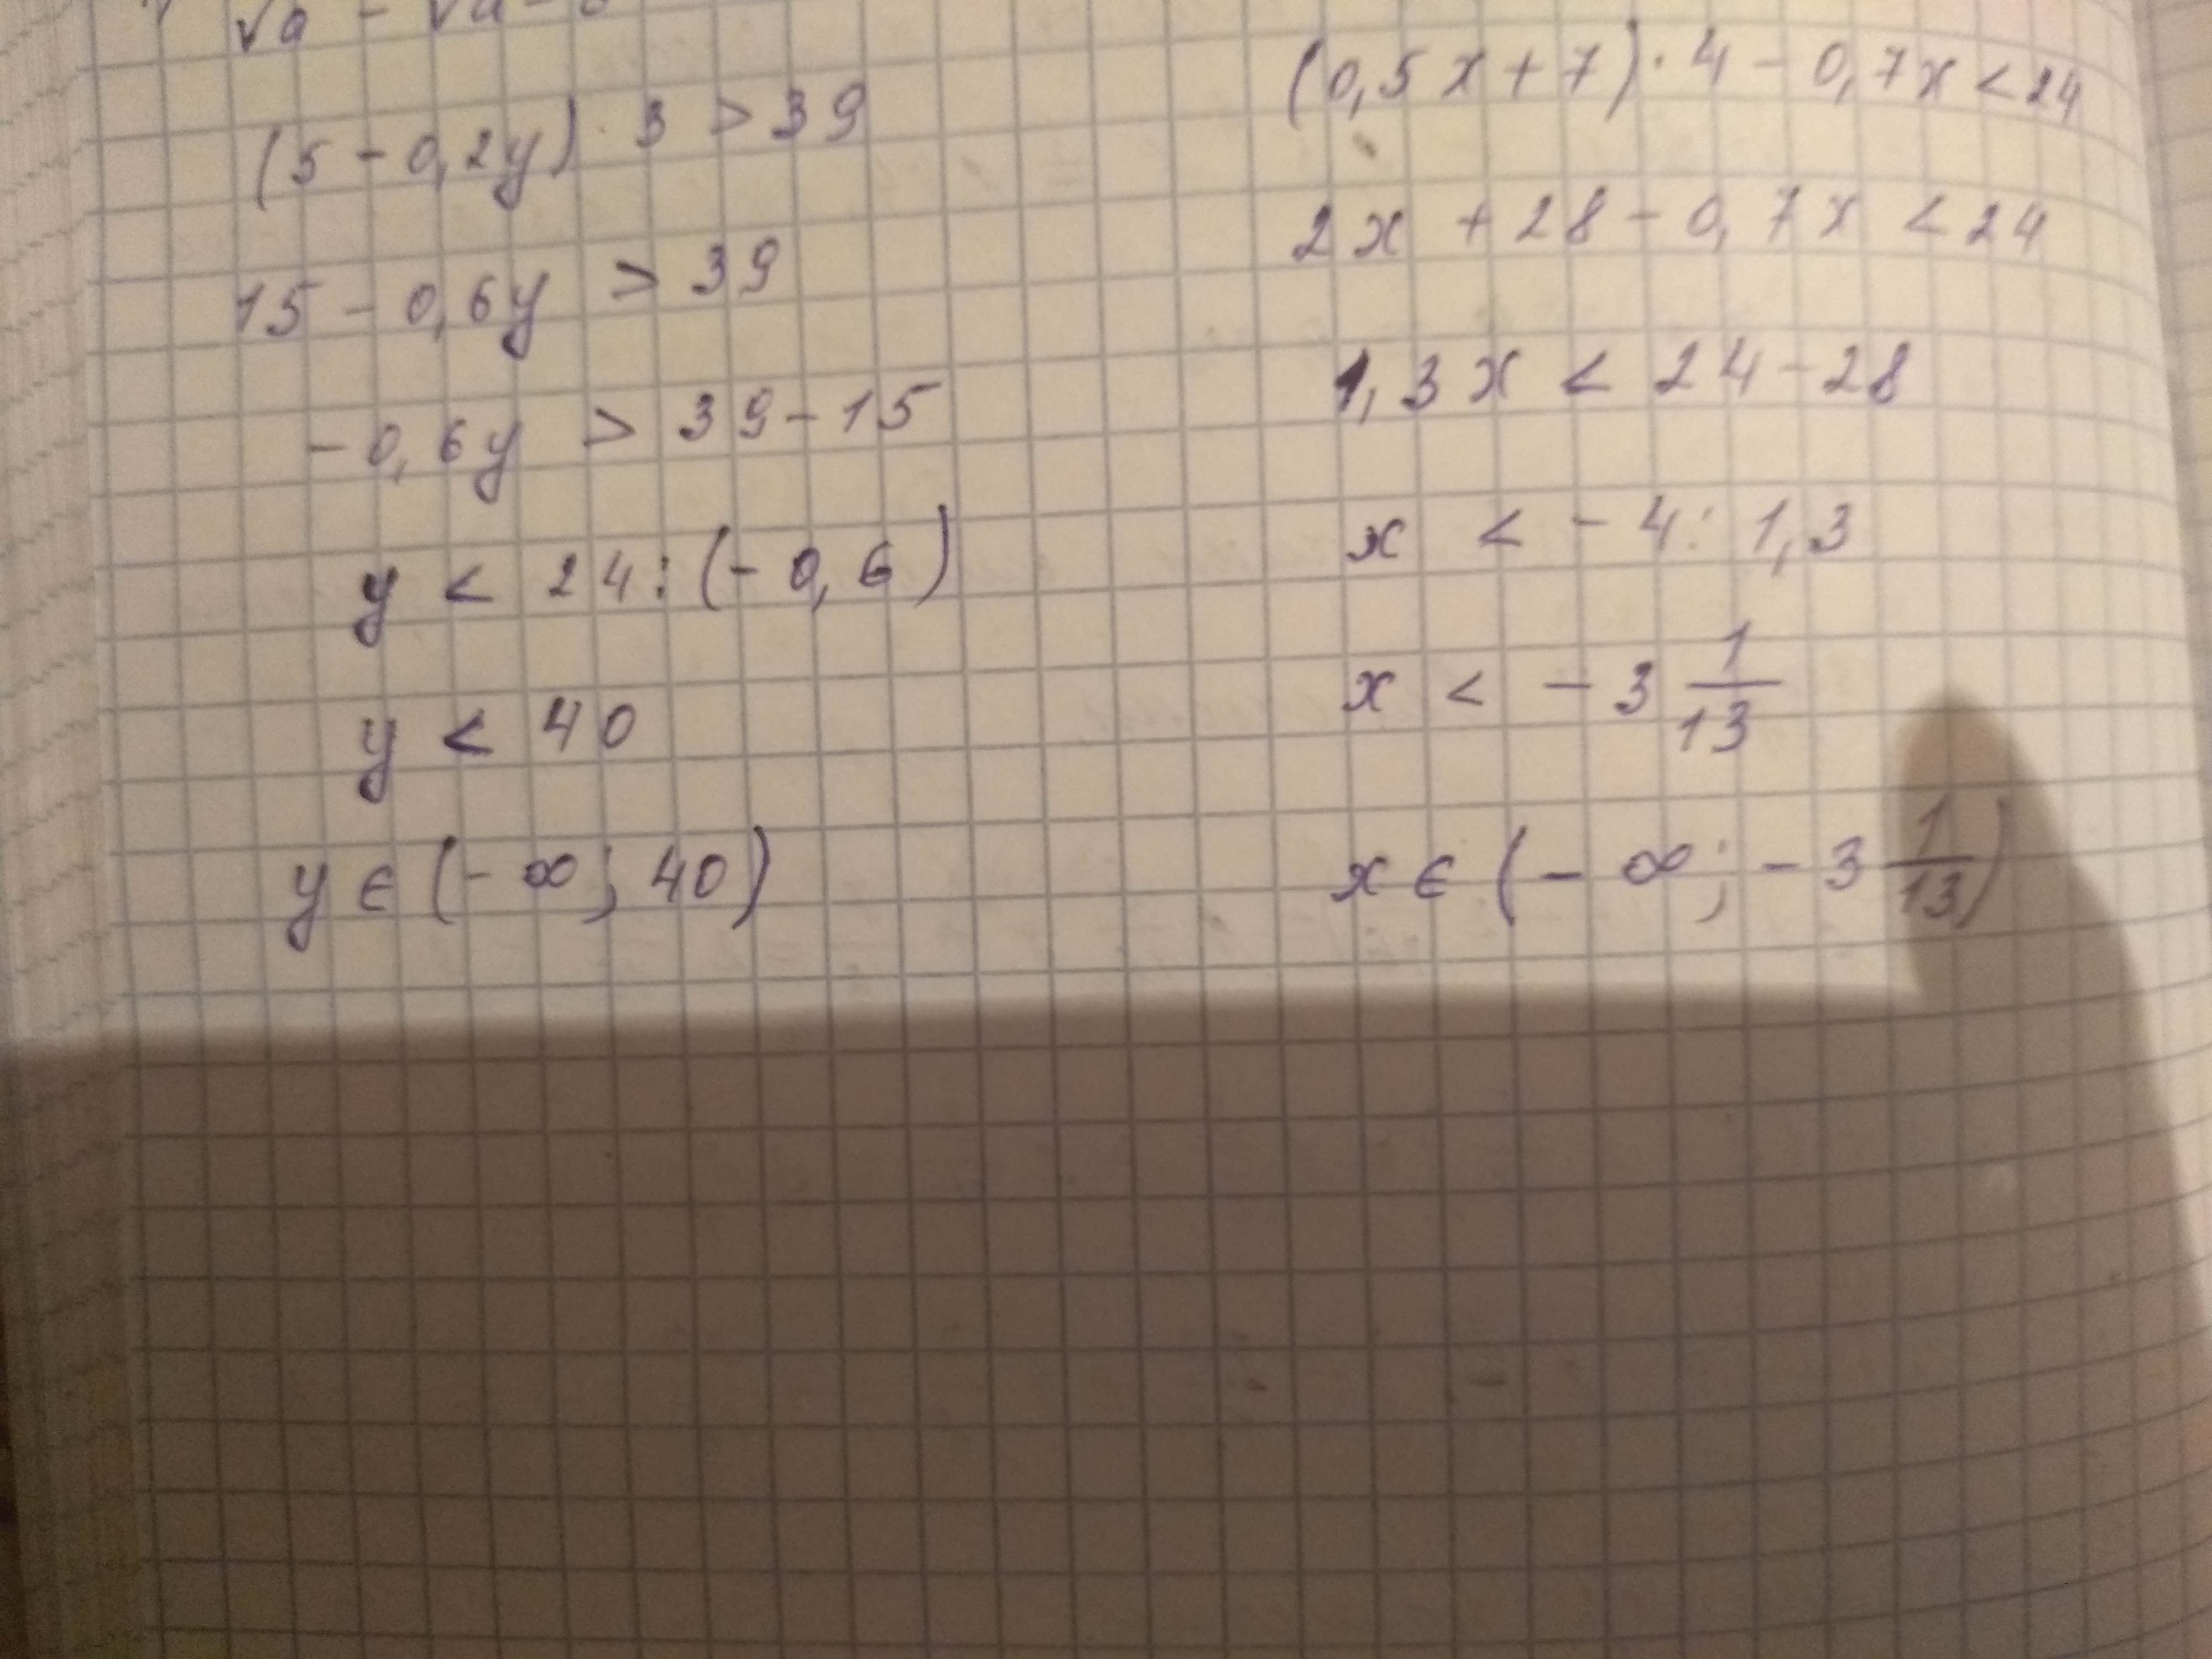 (5 - 0,2y) · 3 > 39
15 - 0,6y > 39
- 0,6y > 39 - 15
y < 24 : (- 0,6)
y < 40
y ∈ (- ∞; 40)
(0,5x + 7) · 4 - 0,7x < 24
2x + 28 - 0,7x < 24
1,3x < 24 - 28
x < - 4 : 1,3
x < - 3 1/13
x ∈ (- ∞; - 3 1/13)